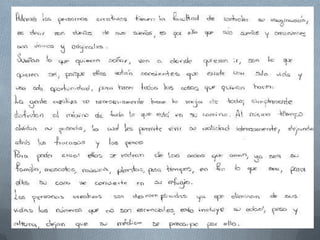 Además las personas creativas tienen la facultad de controlar su imaginación,
es decir son dueñas de sus sueños, es por ello que sus sueños y creaciones
son únicos y originales.
Sueñan lo que quieren soñar, van a donde quieren ir, son lo que
quieren ser, porque ellas están conscientes que existe una sola vida y
una sola oportunidad, para hacer todas las cosas que quieran hacer.
La gente creativa no necesariamente tiene lo mejor de todo, simplemente
disfrutan al máximo de todo lo que está en su camino. Al mismo tiempo
olvidan su pasado, lo cual les permite vivir su realidad intensamente, dejando
atrás los fracasos y las penas
Para poder crear ellas se rodean de las cosas que aman, ya sea su
familia, mascotas, música, plantas, pasatiempos, en fin lo que sea, para
ellas su casa se convierte en su refugio.
Las personas creativas son despreocupadas ya que eliminan de sus
vidas los números que no son esenciales, esto incluye su edad, peso y
altura, dejan que su médico se preocupe por ello.